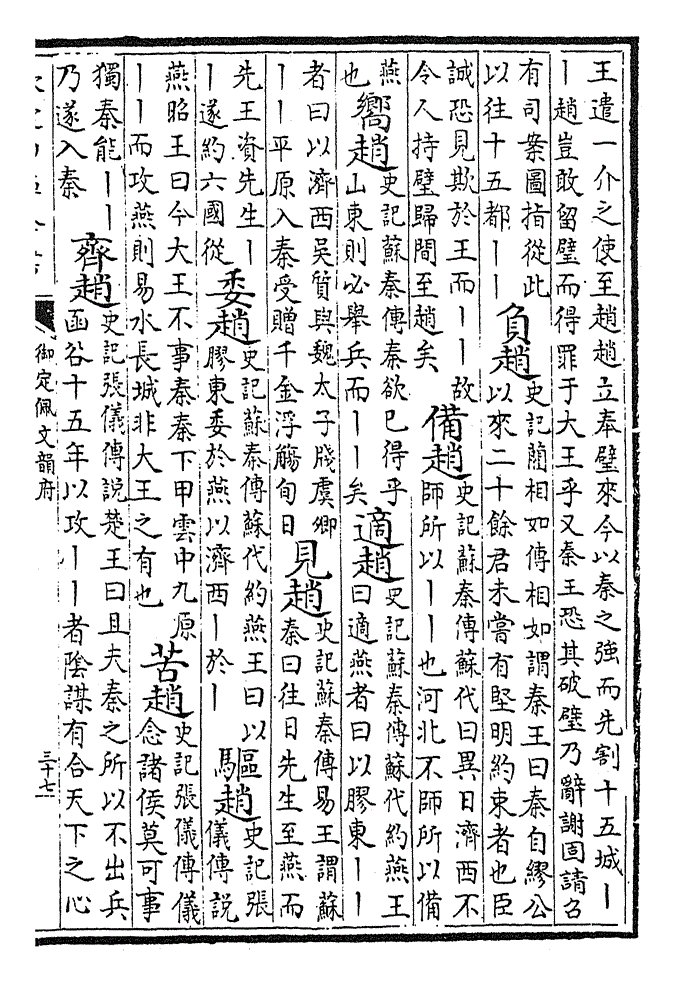 王遣一介之使至趙趙立奉璧來今以秦之強而先割十五城丨
丨趙豈敢留璧而得罪于大王乎又秦王恐其破璧乃辭謝固請召
有司案圖指從此
以往十五都丨丨
負趙
史記藺相如傳相如謂秦王曰秦自繆公
以來二十餘君未嘗有堅明約束者也臣
誠恐見欺於王而丨丨故
令人持璧歸間至趙矣
備趙
史記蘇秦傳蘇代曰異日濟西不
師所以丨丨也河北不師所以備
燕
也
嚮趙
史記蘇秦傳秦欲已得乎
山東則必舉兵而丨丨矣
適趙
史記蘇秦傳蘇代約燕王
曰適燕者曰以膠東丨丨
者曰以濟西吳質與魏太子牋虞卿
丨丨平原入秦受贈千金浮觴旬日
見趙
史記蘇秦傳易王謂蘇
秦曰往日先生至燕而
先王資先生丨
丨遂約六國從
委趙
史記蘇秦傳蘇代約燕王曰以
膠東委於燕以濟西丨於丨
驅趙
史記張
儀傳說
燕昭王曰今大王不事秦秦下甲雲中九原
丨丨而攻燕則易水長城非大王之有也
苦趙
史記張儀傳儀
念諸侯莫可事
獨秦能丨丨
乃遂入秦
齊趙
史記張儀傳說楚王曰且夫秦之所以不出兵
函谷十五年以攻丨丨者陰謀有合天下之心
御定佩文韻府
三十七